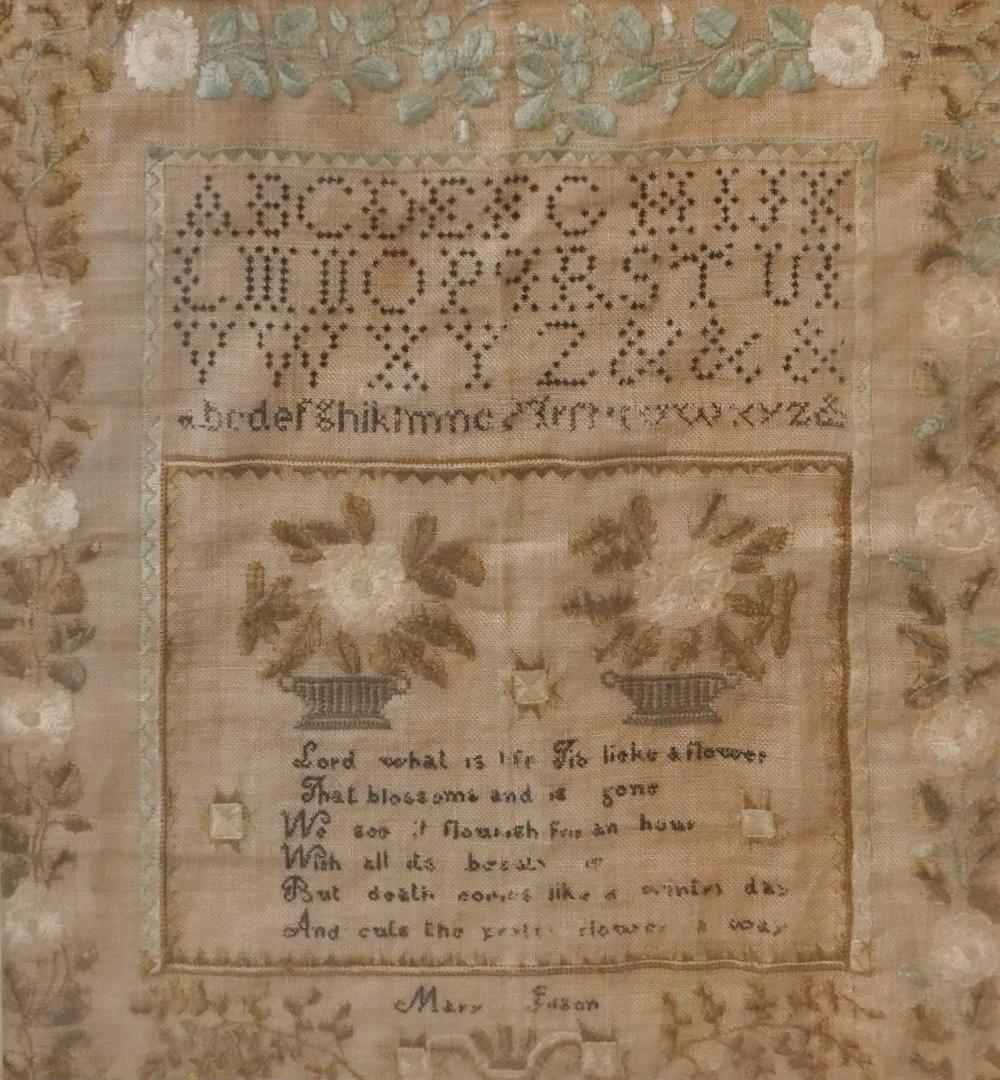 A B C D E F G H I J K
L M N O P Q R S T U
V W X Y Z & & &
abcdefghiklmno wxyz&
Lord what is life Tis lieke a flower
That blossoms and is gone
We see it flourish for an hour
With all its beauty on
But death comes like a wintry day
And cuts the pretty flower a way
Mary